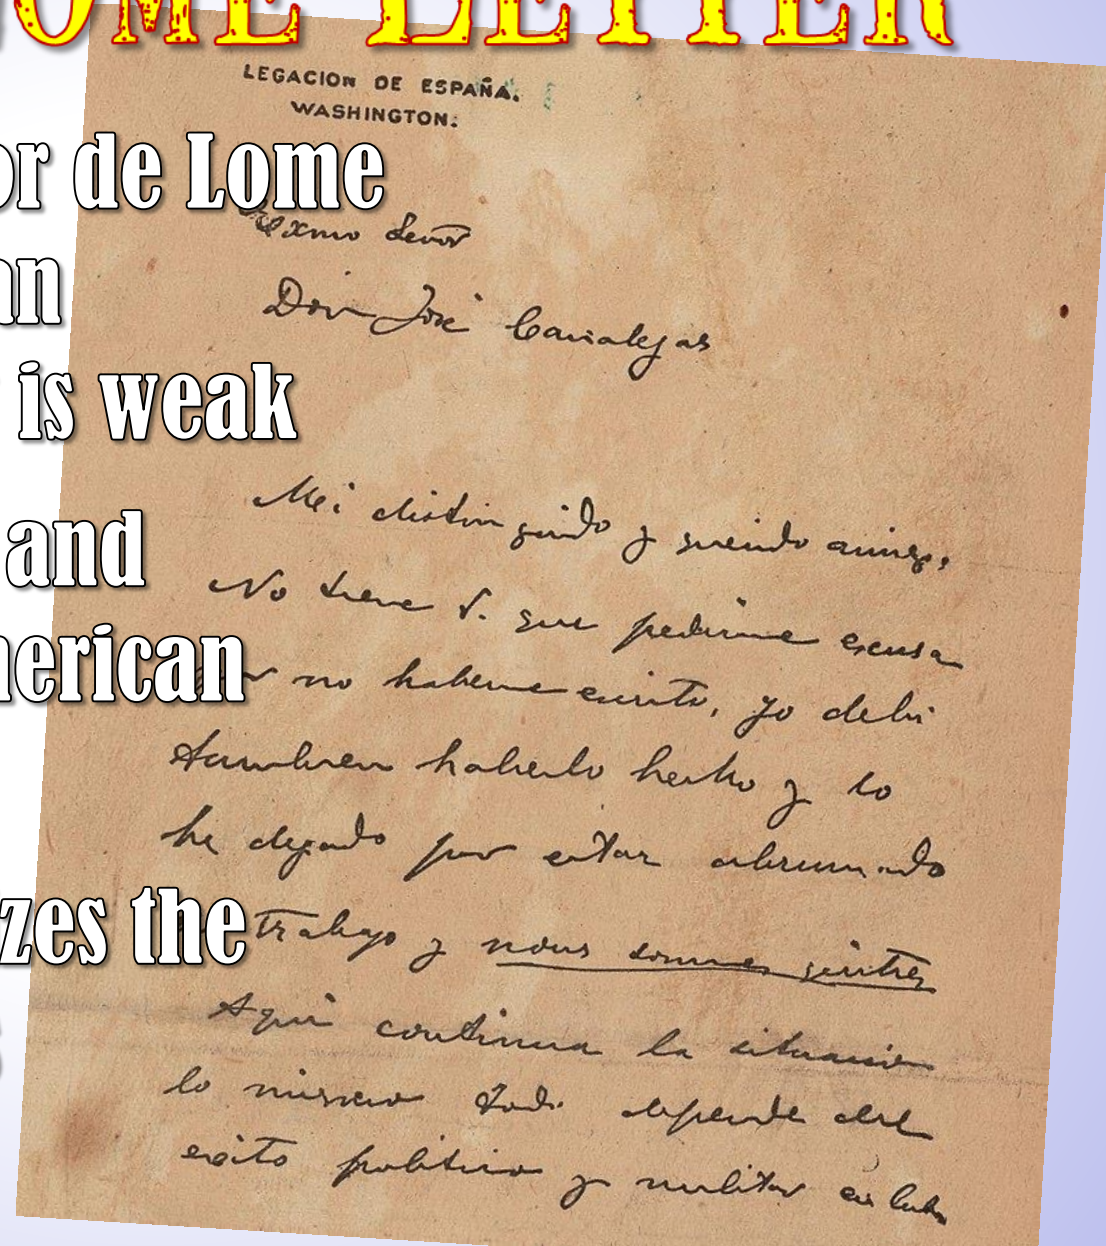 OME LETTER
LEGACION DE ESPAÑA.
WASHINGTON.
or de Lome
Exmo Señor
an
Don José Canalejas
is weak
Mi distinguido y querido amigo,
and
No tiene V. que pedirme excusa
merican
por no haberme escrito, yo debi
tambien haberlo hecho y lo
he dejado por estar abrumado
zes the
trabajo y nous sommes quittes
Aqui continua la situacion
lo mismo todo depende del
exito politico y militar en Cuba